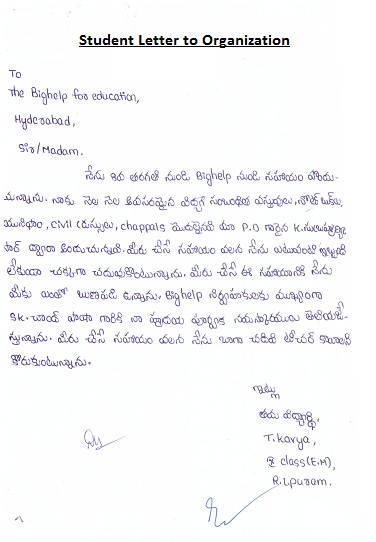 Student Letter to Organization
To
The Bighelp for education,
Hyderabad,
Sir/Madam.
నేను 6వ తరగతి నుండి Bighelp నుండి సహాయం పొందు-
చున్నాను. నాకు నెల నెల అవసరమైన విద్యా సంబంధిత వస్తువులు, నోట్ బుక్స్,
యునిఫాం, civil డ్రస్సులు, chappals మొదలైనవి మా P.D గారైన K.
సార్ ద్వారా అందుచున్నవి. మీరు చేసే సహాయం వలన నేను ఎటువంటి ఇబ్బంది
లేకుండా చక్కగా చదువుకొంటున్నాను. మీరు చేసే ఈ సహాయానికి నేను
మీకు ఎంతో ఋణపడి ఉన్నాను. Bighelp నిర్వాహకులకు ముఖ్యంగా
SK. చాంద్ పాషా గారికి నా హృదయ పూర్వక నమస్కారములు తెలియజే-
స్తున్నాను. మీరు చేసే సహాయం వలన నేను బాగా చదివి టీచర్ కావాలని
కోరుకుంటున్నాను.
ఇట్లు
తమ విద్యార్థి,
T. Kavya,
8 class (E.M),
R.L puram.